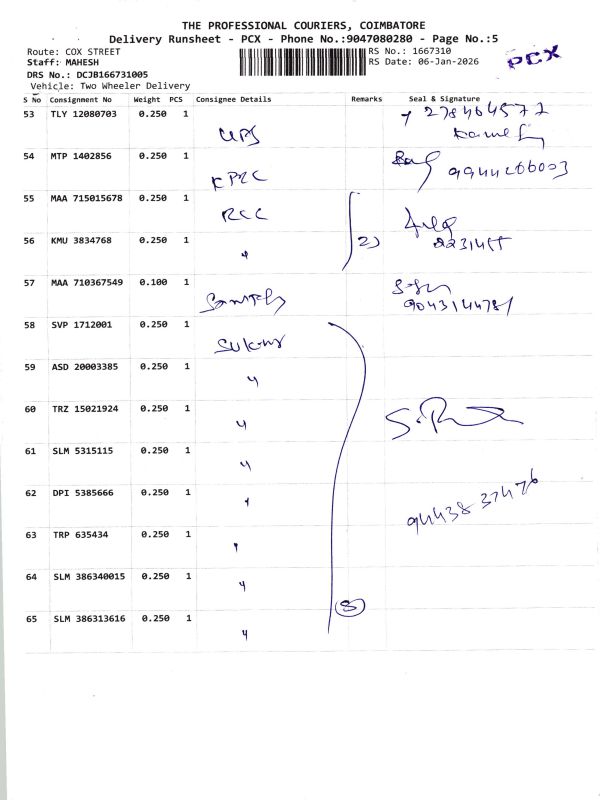 THE PROFESSIONAL COURIERS, COIMBATORE
Delivery Runsheet - PCX - Phone No.:9047080280 - Page No.:5
Route: COX STREET
RS No.: 1667310
Staff: MAHESH
RS Date: 06-Jan-2026
PCX
DRS No.: DCJB166731005
Vehicle: Two Wheeler Delivery
S No Consignment No Weight PCS Consignee Details Remarks Seal & Signature
53 TLY 12080703 0.250 1 UPS
54 MTP 1402856 0.250 1 KPRC
55 MAA 715015678 0.250 1 RCC
56 KMU 3834768 0.250 1 "
57 MAA 710367549 0.100 1
58 SVP 1712001 0.250 1
59 ASD 20003385 0.250 1 "
60 TRZ 15021924 0.250 1 "
61 SLM 5315115 0.250 1 "
62 DPI 5385666 0.250 1 "
9443837476
63 TRP 635434 0.250 1 "
64 SLM 386340015 0.250 1 "
8
65 SLM 386313616 0.250 1 "